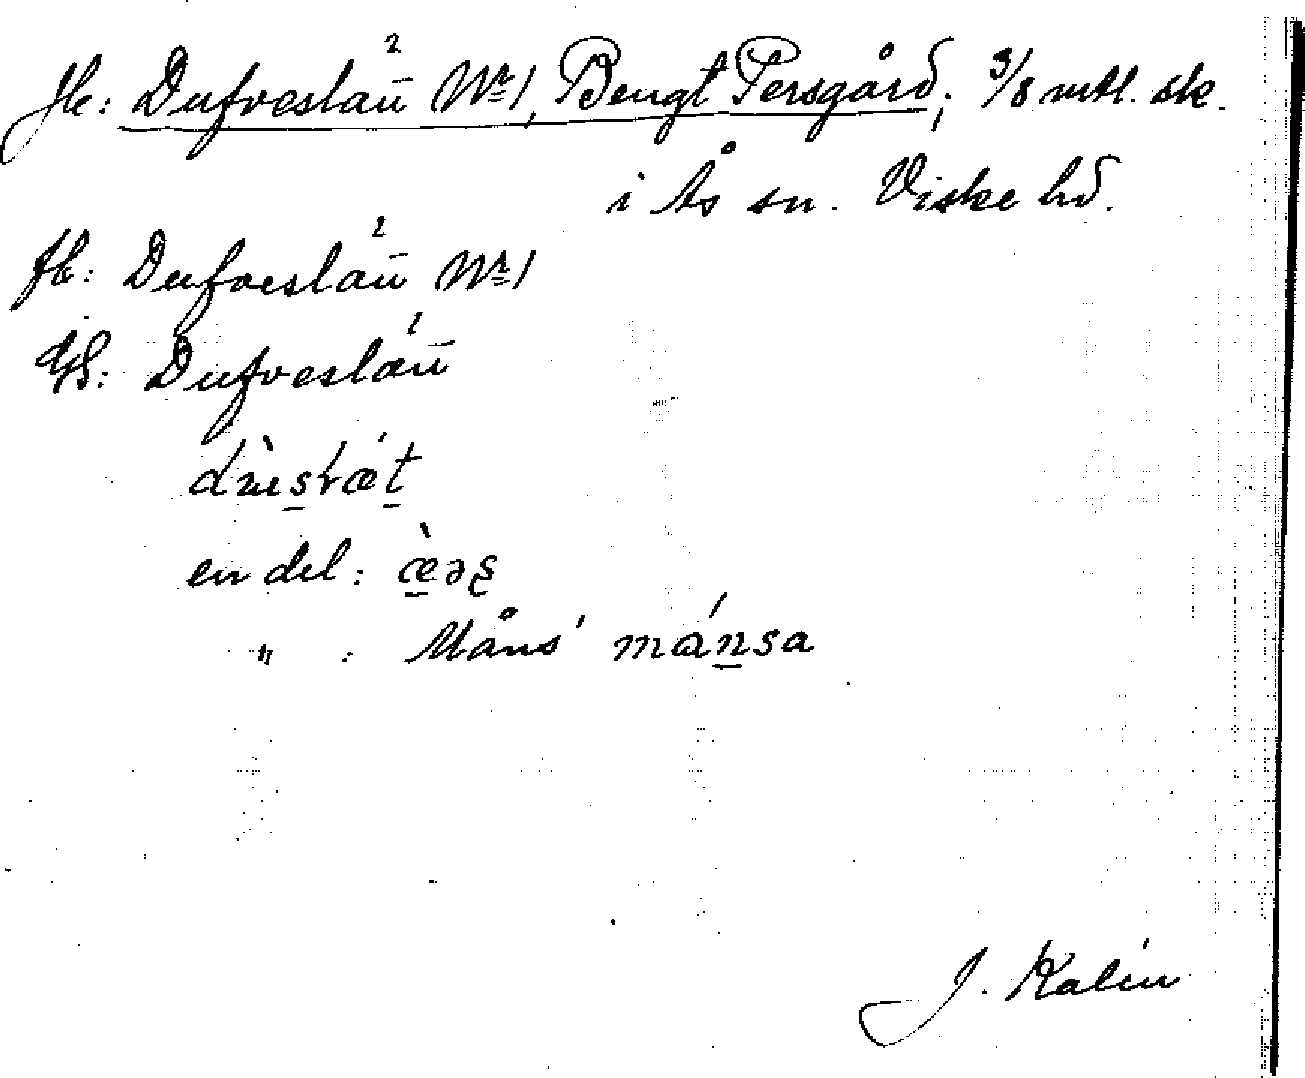 Jb: Dufveslätt² № 1, Bengt Persgård; 3/8 mtl. sk.
i Ås sn. Viske hd.
fb: Dufveslätt² № 1
GS: Dufveslätt
en del:
" : Måns' mánsa
J. Kalén